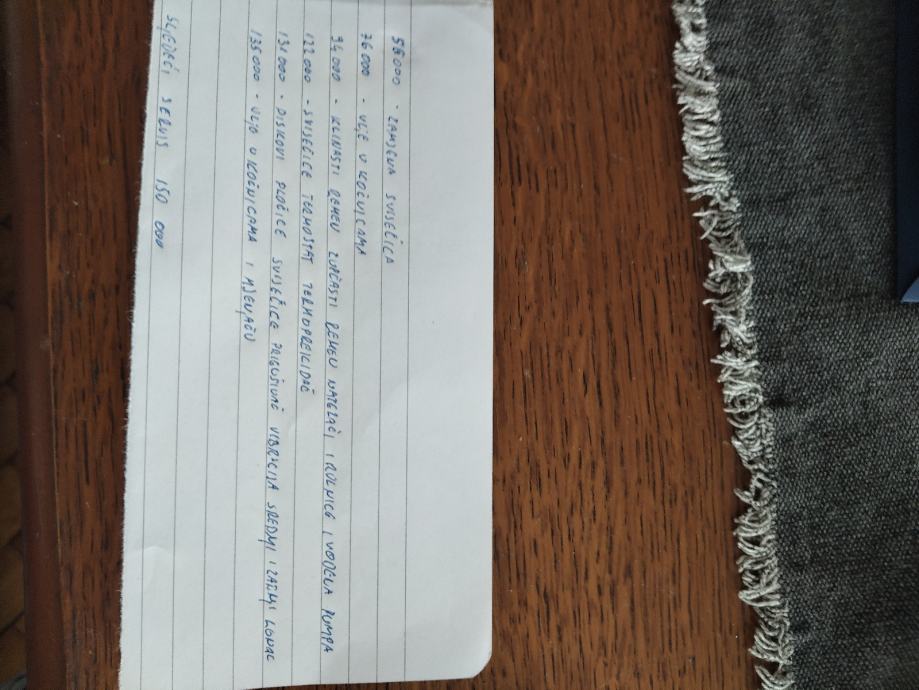 58000 - ZAMJENA SVIJEĆICA
76000 - ULJE U KOČNICAMA
94000 - KLINASTI REMEN ZUPČASTI REMEN NATEZAČI I ROLNICE I VODENA PUMPA
122000 - SVIJEĆICE TERMOSTAT TERMOPREKIDAČ
131000 - DISKOVI PLOČICE SVIJEĆICE PRIGUŠIVAČ VIBRACIJA SREDNJI I ZADNJI LONAC
135000 - ULJE U KOČNICAMA I MJENJAČU
SLJEDEĆI SERVIS 150 000